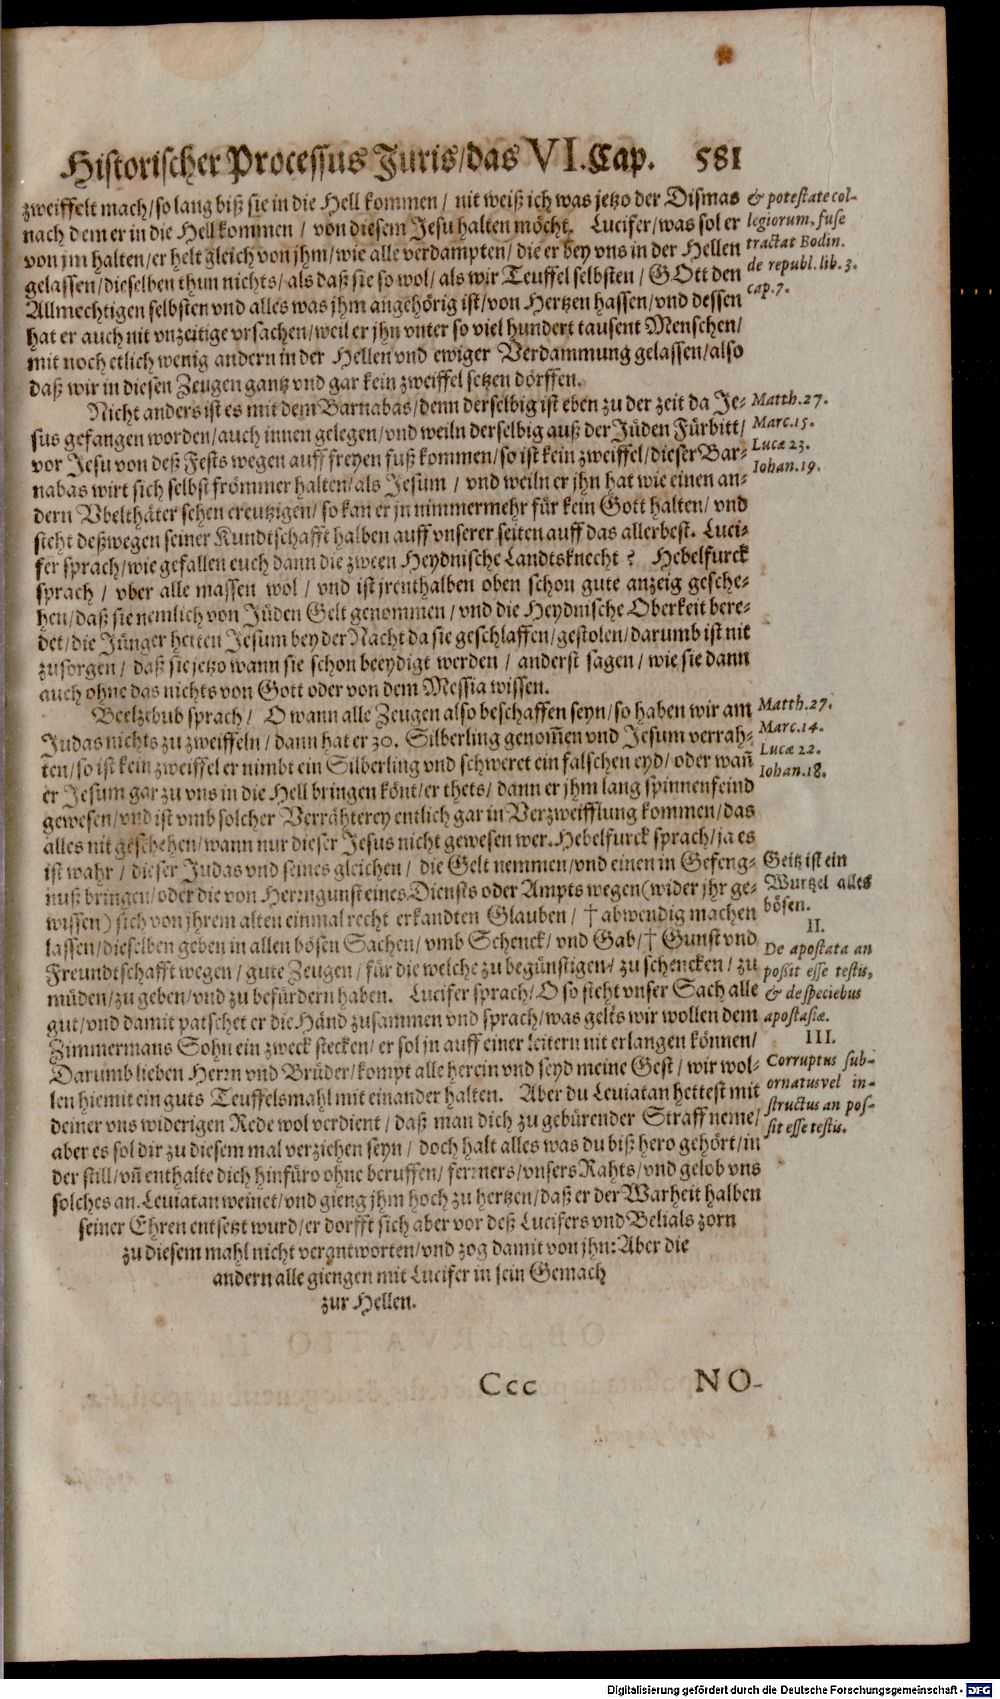 Historischer Processus Juris/das VI. Cap. 581
zweiffelt mach/so lang biß sie in die Hell kommen / nit weiß ich was jetzo der Dismas
nach dem er in die Hell kommen / von diesem Jesu halten möcht. Lucifer/was sol er
von jm halten/er helt gleich von jhm/wie alle verdampten/die er bey vns in der Hellen
gelassen/dieselben thun nichts/als daß sie so wol/als wir Teuffel selbsten/GOtt den
Allmechtigen selbsten vnd alles was jhm angehörig ist/von Hertzen hassen/vnd dessen
hat er auch nit vnzeitige vrsachen/weil er jhn vnter so viel hundert tausent Menschen/
mit noch etlich wenig andern in der Hellen vnd ewiger Verdammung gelassen/also
daß wir in diesen Zeugen gantz vnd gar kein zweiffel setzen dörffen.
& potestate col-
legiorum, fuse
tractat Bodin.
de republ. lib. 3.
cap. 7.
Nicht anders ist es mit dem Barnabas/denn derselbig ist eben zu der zeit da Je-
sus gefangen worden/auch innen gelegen/vnd weiln derselbig auß der Jüden Fürbitt/
vor Jesu von deß Fests wegen auff freyen fuß kommen/so ist kein zweiffel/dieser Bar-
nabas wirt sich selbst frömmer halten/als Jesum / vnd weiln er jhn hat wie einen an-
dern Vbelthäter sehen creutzigen/so kan er jn nimmermehr für kein Gott halten/vnd
steht deßwegen seiner Kundtschafft halben auff vnserer seiten auff das allerbest. Luci-
fer sprach/wie gefallen euch dann die zween Heydnische Landtsknecht? Hebelfurck
sprach / vber alle massen wol / vnd ist jrenthalben oben schon gute anzeig gesche-
hen/daß sie nemlich von Jüden Gelt genommen/vnd die Heydnische Oberkeit bere-
det/die Jünger hetten Jesum bey der Nacht da sie geschlaffen/gestolen/darumb ist nit
zusorgen / daß sie jetzo wann sie schon beeydigt werden / anderst sagen / wie sie dann
auch ohne das nichts von Gott oder von dem Messia wissen.
Matth. 27.
Marc. 15.
Lucæ 23.
Iohan. 19.
Beelzebub sprach / O wann alle Zeugen also beschaffen seyn/so haben wir am
Judas nichts zu zweiffeln/dann hat er 30. Silberling genom̃en vnd Jesum verrah-
ten/so ist kein zweiffel er nimbt ein Silberling vnd schweret ein falschen eyd/oder wañ
er Jesum gar zu vns in die Hell bringen könt/er thets/dann er jhm lang spinnenfeind
gewesen/vnd ist vmb solcher Verrähterey entlich gar in Verzweifflung kommen/das
alles nit geschehen/wann nur dieser Jesus nicht gewesen wer. Hebelfurck sprach/ja es
ist wahr / dieser Judas vnd seines gleichen / die Gelt nemmen/vnd einen in Gefeng-
nuß bringen/oder die von Herrngunst eines Diensts oder Ampts wegen (wider jhr ge-
wissen) sich von jhrem alten einmal recht erkandten Glauben / † abwendig machen
lassen/dieselben geben in allen bösen Sachen/vmb Schenck/vnd Gab/† Gunst vnd
Freundtschafft wegen / gute Zeugen / für die welche zu begünstigen / zu schencken / zu
müden/zu geben/vnd zu befürdern haben. Lucifer sprach/O so steht vnser Sach alle
gut/vnd damit patschet er die Händ zusammen vnd sprach/was gelts wir wollen dem
Zimmermans Sohn ein zweck stecken/er sol jn auff einer leitern nit erlangen können/
Darumb lieben Herrn vnd Brüder/kompt alle herein vnd seyd meine Gest / wir wol-
len hiemit ein guts Teuffelsmahl mit einander halten. Aber du Leuiatan hettest mit
deiner vns widerigen Rede wol verdient / daß man dich zu gebürender Straff neme/
aber es sol dir zu diesem mal verziehen seyn / doch halt alles was du biß hero gehört/in
der still/vñ enthalte dich hinfüro ohne beruffen/ferrners/vnsers Rahts/vnd gelob vns
solches an. Leuiatan weinet/vnd gieng jhm hoch zu hertzen/daß er der Warheit halben
seiner Ehren entsetzt wurd/er dorfft sich aber vor deß Lucifers vnd Belials zorn
zu diesem mahl nicht verantworten/vnd zog damit von jhn: Aber die
andern alle giengen mit Lucifer in sein Gemach
zur Hellen.
Matth. 27.
Marc. 14.
Lucæ 22.
Iohan. 18.
Geitz ist ein
Wurtzel alles
bösen.
II.
De apostata an
poßit esse testis,
& de speciebus
apostasiæ.
III.
Corruptus sub-
ornatus vel in-
structus an pos-
sit esse testis.
Ccc NO-
Digitalisierung gefördert durch die Deutsche Forschungsgemeinschaft - DFG